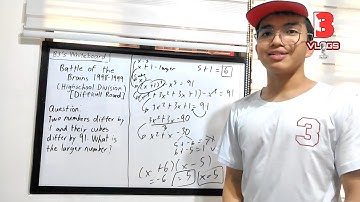 BJ's Whiteboard
Battle of the
Brains 1998-1999
(Highschool Division)
[Difficult Round]
Question:
Two numbers differ by
1 and their cubes
differ by 91. What is
the larger number?
x+1 - larger
5+1 = 6
(x+1)³ - x³ = 91
x³+3x²+3x+1) - x³ = 91
3x²+3x+1 = 91
3x²+3x-90
x²+x-30
(x+6)(x-5)
= -6
= 5
x=5
3
VLOGS
3